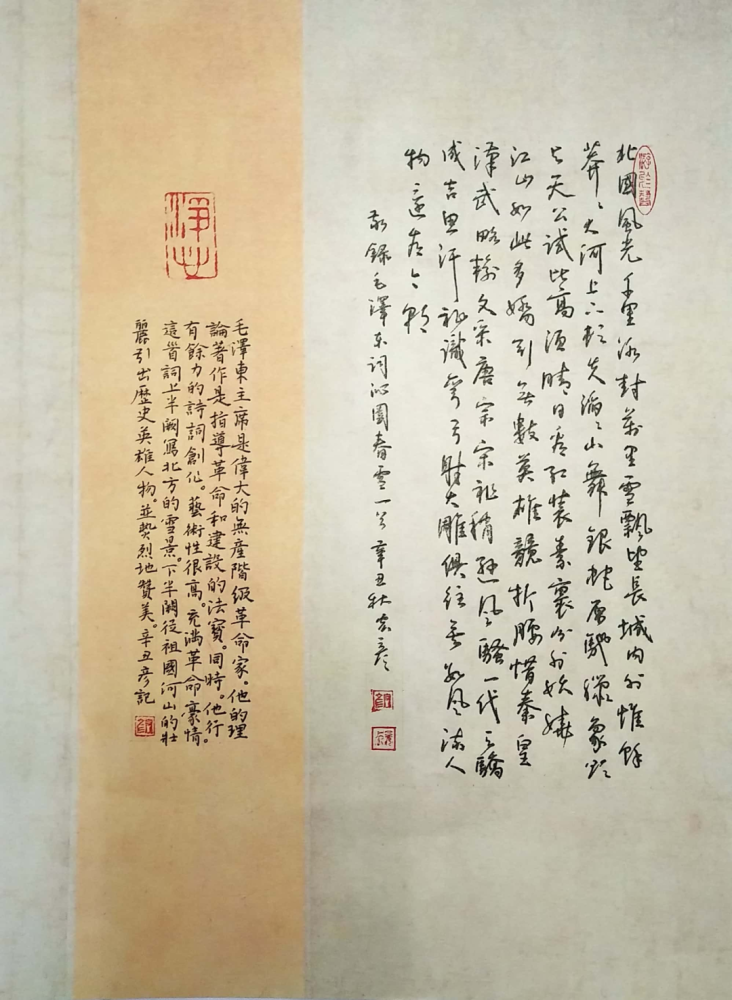 北國風光千里冰封萬里雪飄望長城内外惟餘
莽〻大河上下頓失滔〻山舞銀蛇原馳蠟象欲
與天公試比高須晴日看紅裝素裹分外妖嬈
江山如此多嬌引無數英雄競折腰惜秦皇
漢武略輸文采唐宗宋祖稍遜風騷一代天驕
成吉思汗祗識彎弓射大雕俱往矣數風流人
物還看今朝
敬錄毛澤東詞沁園春雪一首辛丑秋彥
毛澤東主席是偉大的無産階級革命家。他的理
論著作是指導革命和建設的法寶。同時。他行
有餘力的詩詞創作。藝術性很高。充滿革命豪情
這首詞上半闕寫北方的雪景。下半闕從祖國河山的壯
麗引出歷史英雄人物。並熱烈地贊美。辛丑彥記